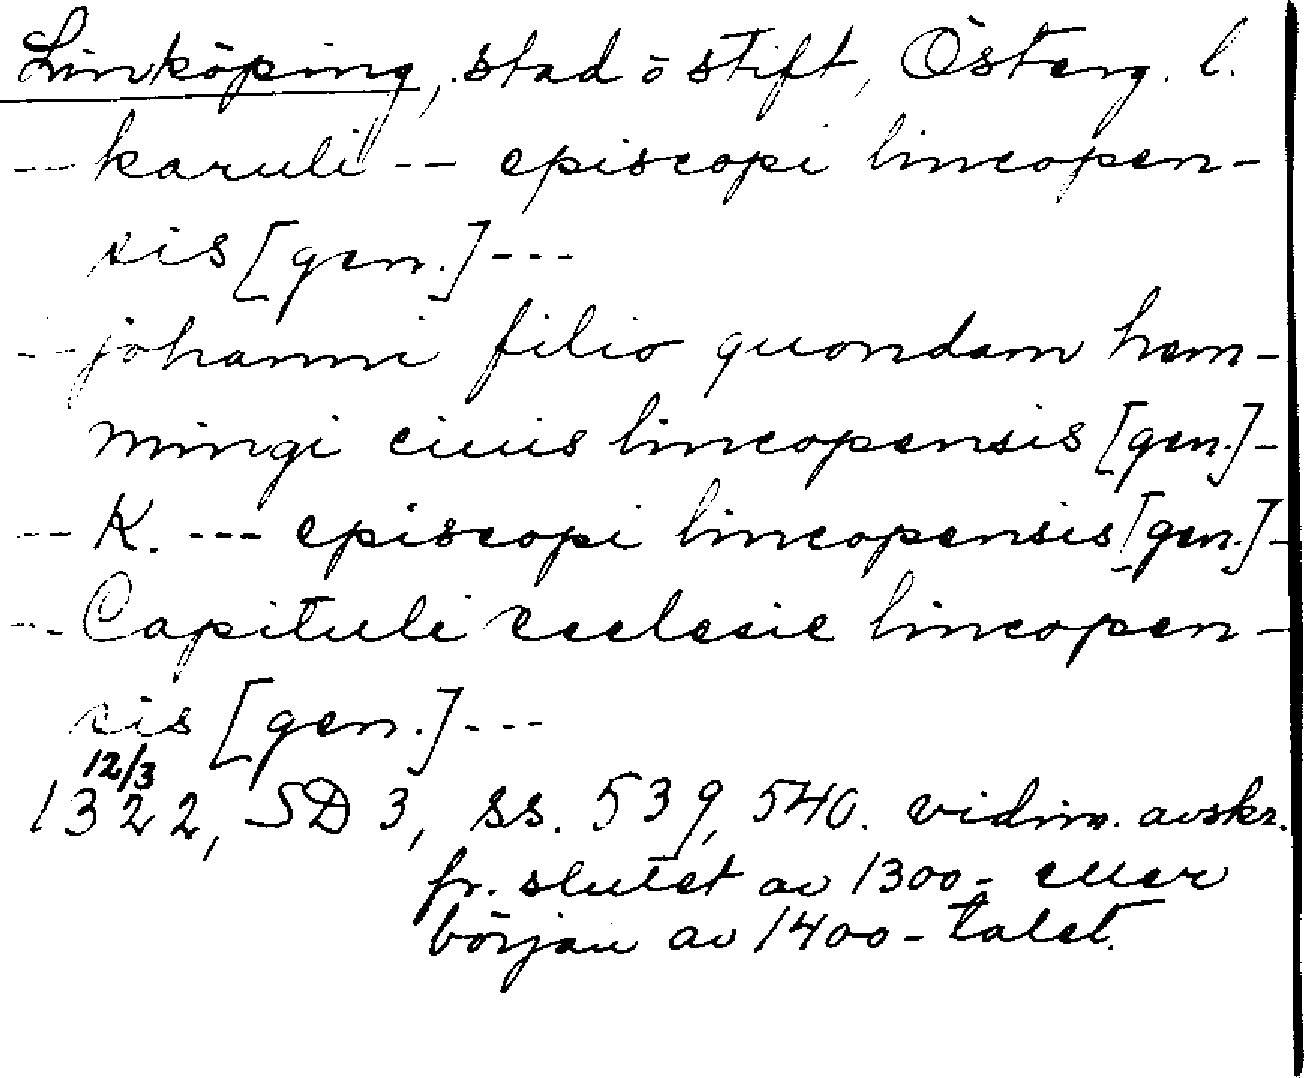 Linköping, stad o stift, Österg. l.
-- karuli -- episcopi lincopen-
sis [gen.] ---
-- johanni filio quondam hem-
mingi ciuis lincopensis [gen.] -
-- K. --- episcopi lincopensis [gen.] -
--- Capituli ecclesie lincopen-
sis [gen.] ---
12/3
1322, SD 3, ss. 539, 540. vidim. avskr.
fr. slutet av 1300- eller
början av 1400-talet.